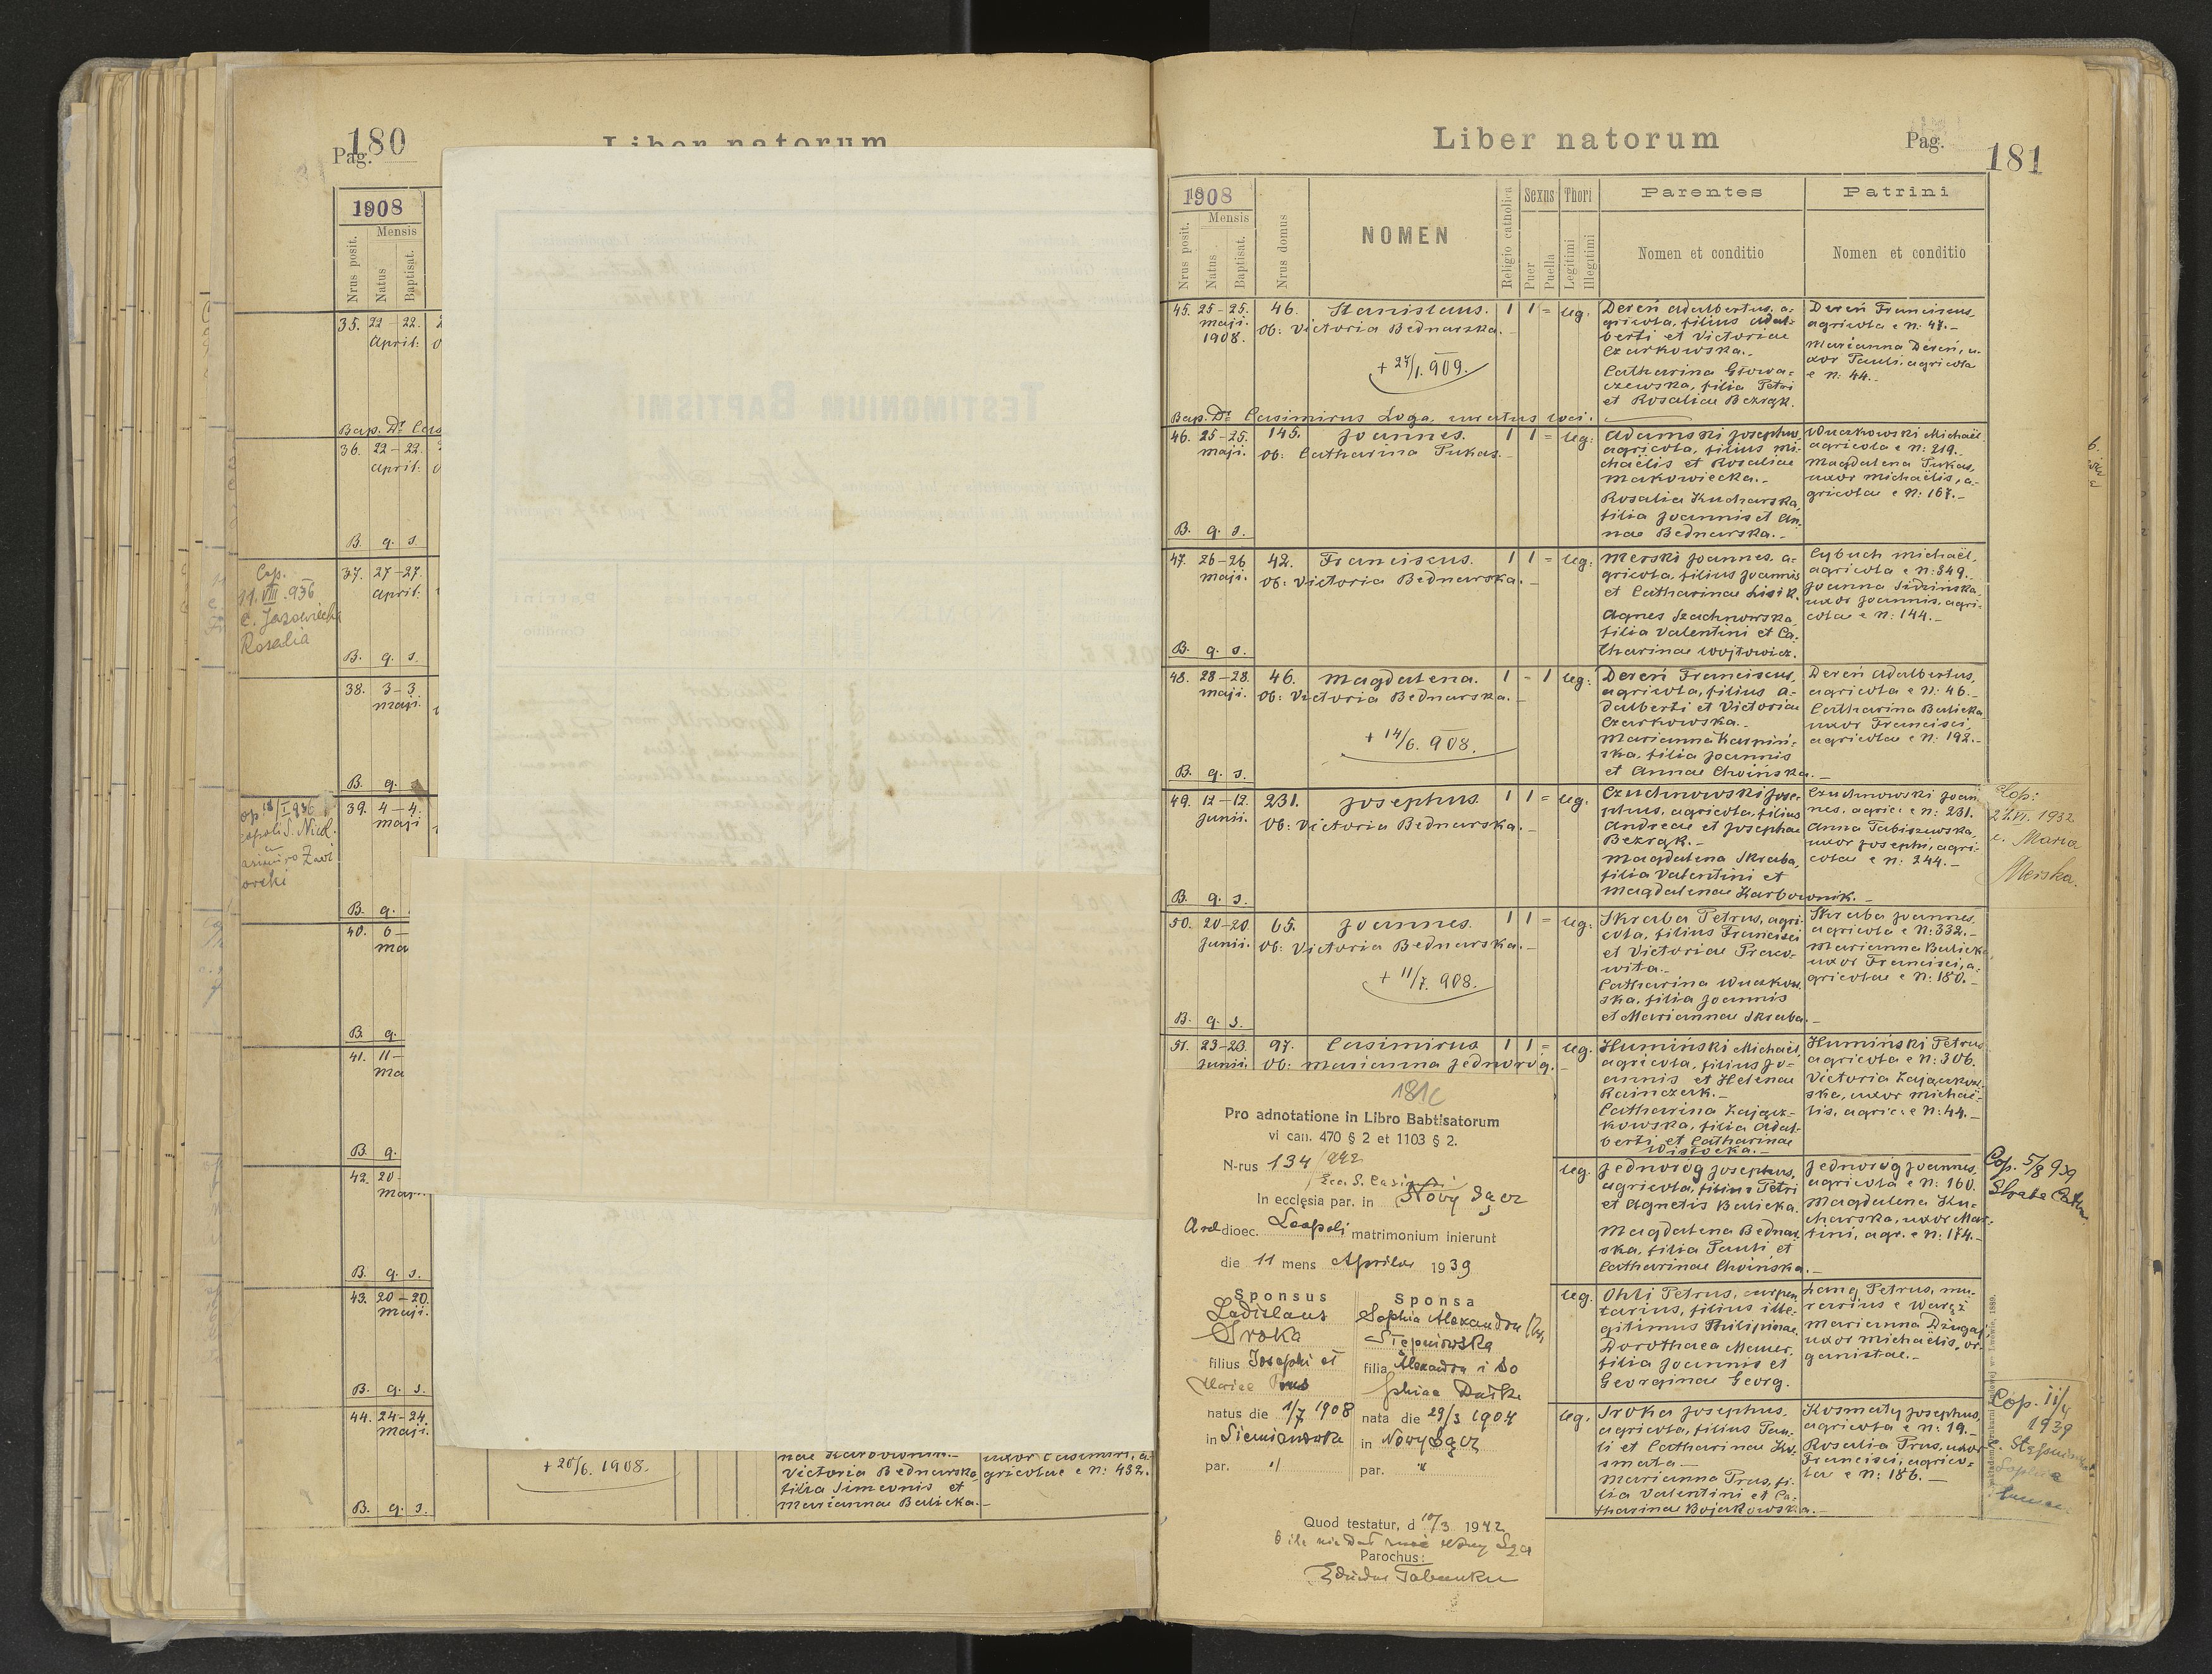 Pag. 180
Liber natorum
1908
Nrus posit.
Mensis
Natus
Baptisat.
35. 22-22.
April:
Bap. Dr Cas
36. 22-22.
April:
B. q. s.
Cop.
11. VIII. 936
c. Jazowiecka
Rosalia
37. 27-27.
April:
B. q. s.
38. 3-3.
maji.
B. q.
39. 4-4.
maji
B. q.
40. 6-
ma
B. q.
41. 11-
ma
B. q.
42. 20-
maji.
B. q. s.
43. 20-20.
maji.
B. q. s.
44. 24-24.
maji.
+ 20/6. 1908.
Victoria Bednarska,
filia Simeonis et
Mariannae Balicka.-
uxor Casimiri, a-
gricolae e N: 432.
B. q. s.
Liber natorum
Pag. 181
1908
Nrus posit.
Mensis
Natus
Baptisat.
Nrus domus
NOMEN
Religio catholica
Sexus
Puer
Puella
Thori
Legitimi
Illegitimi
Parentes
Nomen et conditio
Patrini
Nomen et conditio
45. 25-25. maji. 1908.
46. Stanislaus. 1 1 = leg.
Ob: Victoria Bednarska.-
+ 27/1. 909.
Dereń Adalbertus, a-
gricola, filius Adal-
berti et Victoriae
Czarkowska.-
Catharina Głowa-
czewska, filia Petri
et Rosaliae Bezrąk.
Dereń Franciscus,
agricola e N: 47.-
Marianna Dereń, u-
xor Pauli, agricola
e N: 44.-
Bap. Dr Casimirus Loga, curatus loci.
46. 25-25. maji.
145. Joannes. 1 1 = leg:
Ob: Catharina Pukas.-
Adamski Josephus,
agricola, filius Mi-
chaëlis et Rosaliae
Makowiecka.-
Rosalia Kucharska,
filia Joannis et An-
nae Bednarska.-
Wuczkowski Michaël,
agricola e N: 219.-
Magdalena Pukas,
uxor Michaëlis, a-
gricolae e N: 167.-
B. q. s.
47. 26-26 maji.
42. Franciscus. 1 1 = leg:
Ob: Victoria Bednarska.-
Merski Joannes, a-
gricola, filius Joannis
et Catharinae Lisik.
Agnes Szachnowska,
filia Valentini et Ca-
tharinae Wojtowicz.
Cybuch Michaël,
agricola e N: 349.-
Joanna Sidzińska,
uxor Joannis, agri-
colae e N: 144.-
B. q. s.
48. 28-28. maji.
46. Magdalena. 1 - 1 leg:
Ob: Victoria Bednarska.-
+ 14/6. 908.
Dereń Franciscus,
agricola, filius A-
dalberti et Victoriae
Czarkowska.-
Marianna Karpiń-
ska, filia Joannis
et Annae Choińska.-
Dereń Adalbertus,
agricola e N: 46.-
Catharina Balicka,
uxor Francisci,
agricolae e N: 192.-
B. q. s.
49. 12-12. Junii.
231. Josephus 1 1 = leg.
Ob: Victoria Bednarska.-
Czuchnowski Jose-
phus, agricola, filius
Andreae et Josephae
Bezrąk.-
Magdalena Skraba,
filia Valentini et
Magdalenae Karbownik.-
Czuchnowski Joan-
nes, agric: e N: 231.
Anna Tabiszewska,
uxor Josephi, agri-
colae e N: 244.-
Cop:
1932
c. Maria
Merska.
B. q. s.
50. 20-20. Junii.
65. Joannes. 1 1 = leg:
Ob: Victoria Bednarska.-
+ 11/7. 908.
Skraba Petrus, agri-
cola, filius Francisci
et Victoriae Praco-
wita.-
Catharina Wuczkow-
ska, filia Joannis
et Mariannae Skraba.-
Skraba Joannes,
agricola e N: 332.-
Marianna Balicka
uxor Francisci, a-
gricolae e N: 180.-
B. q. s.
51. 23-23 Junii.
97. Casimirus 1 1 = leg.
Ob: Marianna Jednoróg.-
Humiński Michaël,
agricola, filius Jo-
annis et Helenae
Rainczuk.-
Catharina Zającz-
kowska, filia Adal-
berti et Catharinae
Wisłocka.-
Humiński Petrus
agricola e N: 306.
Victoria Zajączkow-
ska, uxor Michaë-
lis, agric: e N: 44.-
leg.
Jednoróg Josephus,
agricola, filius Petri
et Agnetis Balicka.
Magdalena Bednar-
ska, filia Pauli et
Catharinae Choińska.-
Jednoróg Joannes,
agricola e N: 160.
Magdalena Ku-
charska, uxor Mar-
tini, agr. e N: 174.-
Cop. 5/8 939
leg.
Ohli Petrus, carpen-
tarius, filius ille-
gitimus Philipinae.
Dorothaea Mauer,
filia Joannis et
Georginae Georg.
Lang Petrus, mu-
rarius e Waręż
Marianna Dżugaj,
uxor Michaëlis, or-
ganistae.-
leg.
Sroka Josephus,
agricola, filius Pau-
li et Catharinae Ko-
smata-
Marianna Prus, fi-
lia Valentini et Ca-
tharinae Bojakowska.-
Kosmaty Josephus,
agricola e N: 19.-
Rosalia Prus, uxor
Francisci, agrico-
lae e N: 186.-
Cop. 11/4
1939
181c
Pro adnotatione in Libro Babtisatorum
vi can. 470 § 2 et 1103 § 2.
N-rus 134/942
In ecclesia par. in Nowy Sącz
Archdioec. Leopoli matrimonium inierunt
die 11 mens Aprilae 1939
Sponsus
Ladislaus
Sroka
filius Josephi et
Mariae Prus
natus die 1/7 1908
in Siemianówka
par. "
Sponsa
Sophia Alexandra
Stępniowska
filia Alexandra i So
phiae
nata die 29/3 1904
in Nowy Sącz
par. "
Quod testatur, d 10/3 1942
Parochus: